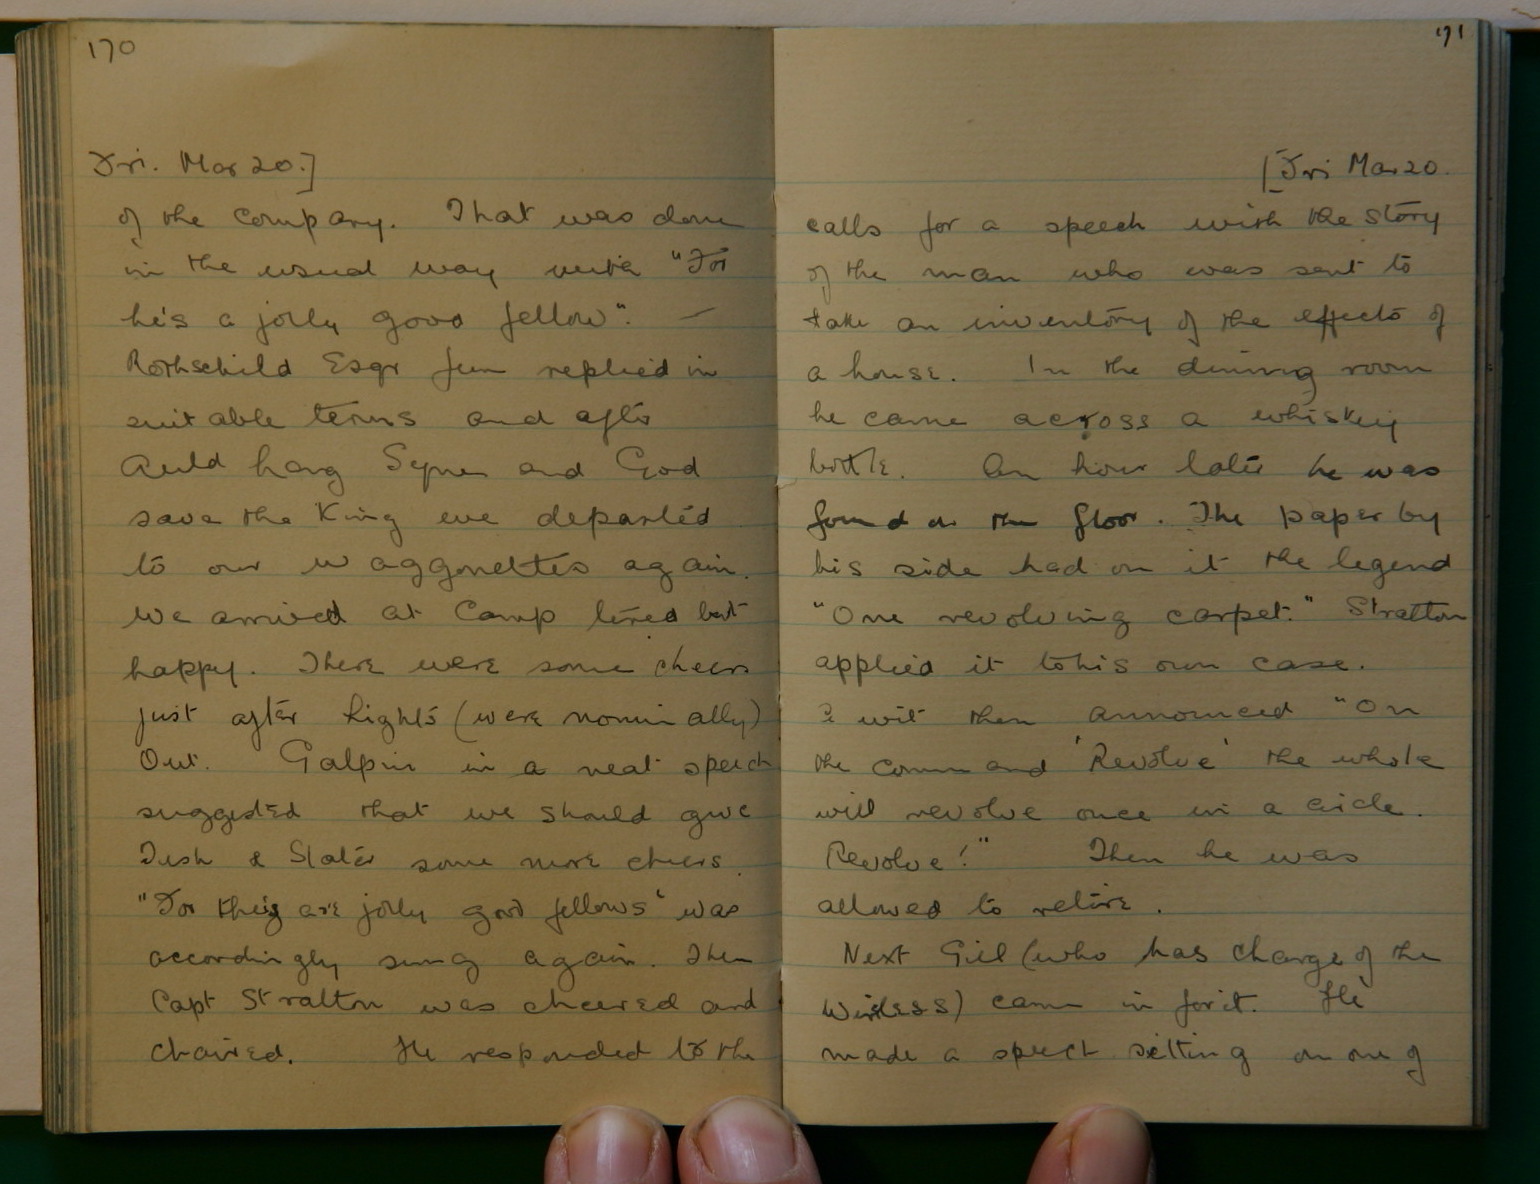 170
Fri. Mar 20.]
of the company. That was done
in the usual way with "For
he's a jolly good fellow". —
Rothschild Esqr Jun replied in
suitable terms and after
Auld Lang Syne and God
save the King we departed
to our waggonettes again.
We arrived at Camp tired but
happy. There were some cheers
just after Lights (were nominally)
Out. Galpin in a neat speech
suggested that we should give
Tush & Slater some more cheers.
"For they are jolly good fellows" was
accordingly sung again. Then
Capt Stratton was cheered and
chaired. He responded to the
171
[Fri Mar 20.
calls for a speech with the story
of the man who was sent to
take an inventory of the effects of
a house. In the dining room
he came across a whiskey
bottle. An hour later he was
found on the floor. The paper by
his side had on it the legend
"One revolving carpet." Stratton
applied it to his own case.
wit then announced "On
the command 'Revolve' the whole
will revolve once in a circle.
Revolve!" Then he was
allowed to retire.
Next Gill (who has charge of the
Wireless) came in for it. He
made a speech sitting on one of